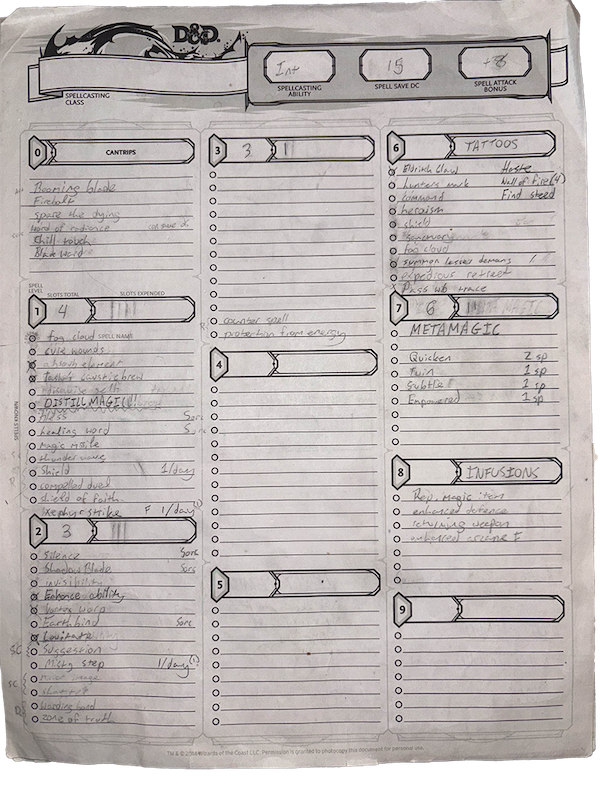 D&D
Int
15
+8
SPELLCASTING CLASS
SPELLCASTING ABILITY
SPELL SAVE DC
SPELL ATTACK BONUS
0 CANTRIPS
Booming blade
Firebolt
spare the dying
word of radiance
Chill touch
Blade ward
SPELL LEVEL
SLOTS TOTAL
SLOTS EXPENDED
1 4 ||||
SPELLS KNOWN
fog cloud SPELL NAME
cure wounds
absorb element
Tasha's caustic brew
DISTILL MAGIC
Sorc
healing word
magic missile
thunder wave
Shield 1/day
compelled duel
shield of faith
zephyr strike F 1/day
2 3 |||
Silence Sorc
Shadow Blade Sorc
invisibility
Enhance ability
vortex warp
Earthbind Sorc
Levitate
SC Suggestion
Misty step 1/day (1)
SC mirror image
Warding bond
zone of truth
3 3 ||
counter spell
protection from energy
4
5
6 TATTOOS
Eldritch Claw Haste
hunters mark Wall of Fire (4)
command Find steed
heroism
shield
sanctuary
fog cloud
summon lesser demons 1
expedious retreat
Pass w/o trace
7 6
METAMAGIC
Quicken 2 sp
Twin 1 sp
Subtle 1 sp
Empowered 1 sp
8 INFUSIONS
Rep. magic item
enhanced defence
returning weapon
enhanced arcane F
9
TM & © 2014 Wizards of the Coast LLC. Permission is granted to photocopy this document for personal use.